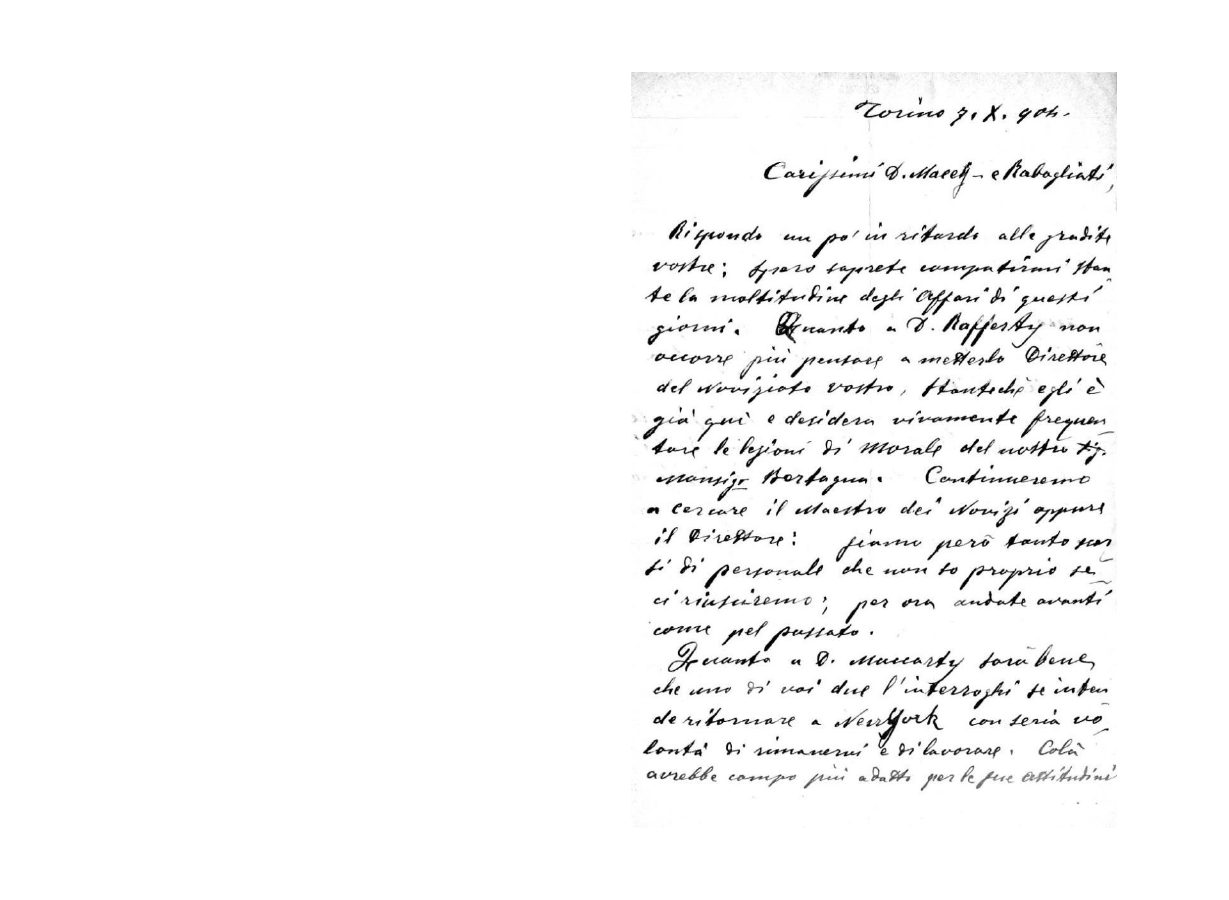 Torino 7. X. 904.
Carissimi D. Macey - e Rabagliati,
Rispondo un po' in ritardo alle gradite
vostre; spero saprete compatirmi stan
te la moltitudine degli affari di questi
giorni. Quanto a D. Rafferty non
occorre più pensare a metterlo Direttore
del Noviziato vostro, stanteché egli è
già qui e desidera vivamente frequen
tare le lezioni di Morale del nostro
Monsigr Bertagna. Continueremo
a cercare il Maestro dei Novizi oppure
il Direttore: siamo però tanto scar
si di personale che non so proprio se
ci riusciremo; per ora andate avanti
come pel passato.
Quanto a D. Maccarty sarà bene
che uno di voi due l'interroghi se inten
de ritornare a New York con seria vo
lontà di rimanervi e di lavorare. Colà
avrebbe campo più adatto per le sue attitudini